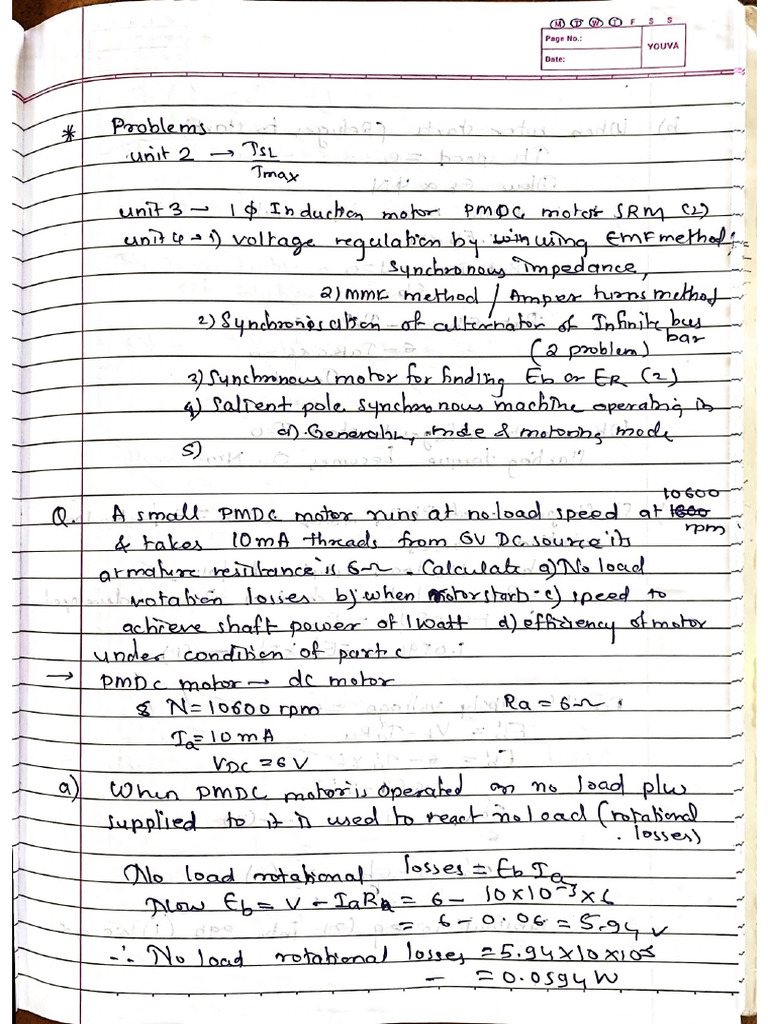 M T W T F S S
Page No.:
YOUVA
Date:
* Problems
unit 2 → TSL
Tmax
unit 3 → 1ϕ Induction motor PMDC motor SRM (2)
unit 4 → 1) voltage regulation by using EMF method,
Synchronous impedance,
2) MMF method / Amper turns method
2) Synchronisation of alternator of Infinite bus
bar
(2 problem)
3) Synchronous motor for finding Eb or ER (2)
4) Salient pole synchronous machine operating in
a) Generating mode & motoring mode
5)
10600
Q. A small PMDC motor runs at no load speed at
rpm
& takes 10mA threads from 6V DC source its
armature resistance is 6Ω. Calculate a) No load
rotation losses b) when motor start c) speed to
achieve shaft power of 1 watt d) efficiency of motor
under condition of part c
→ PMDC motor → dc motor
N = 10600 rpm Ra = 6Ω
Ia = 10 mA
VDC = 6V
a) When PMDC motor is operated on no load
supplied to it is used to react no load (rotational
losses)
No load rotational losses = Eb Ia
Now Eb = V - IaRa = 6 - 10×10⁻³×6
= 6 - 0.06 = 5.94 V
∴ No load rotational losses = 5.94×10×10⁻³
= 0.0594 W